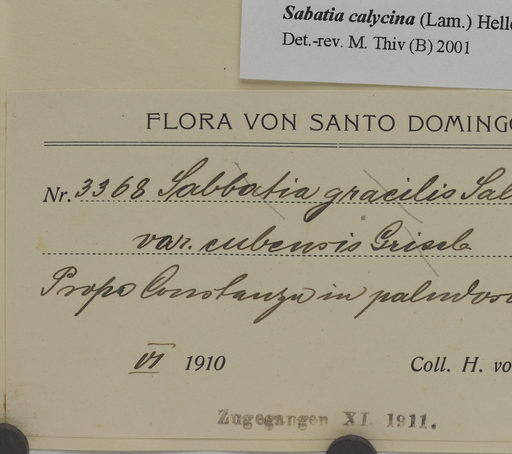 Sabatia calycina (Lam.) Helle
Det.-rev. M. Thiv (B) 2001
FLORA VON SANTO DOMINGO
Nr. 3368 Sabbatia gracilis Sal
var. cubensis Griseb
Prope Constanza in paludoso
VI 1910 Coll. H. vo
Zugegangen XI. 1911.